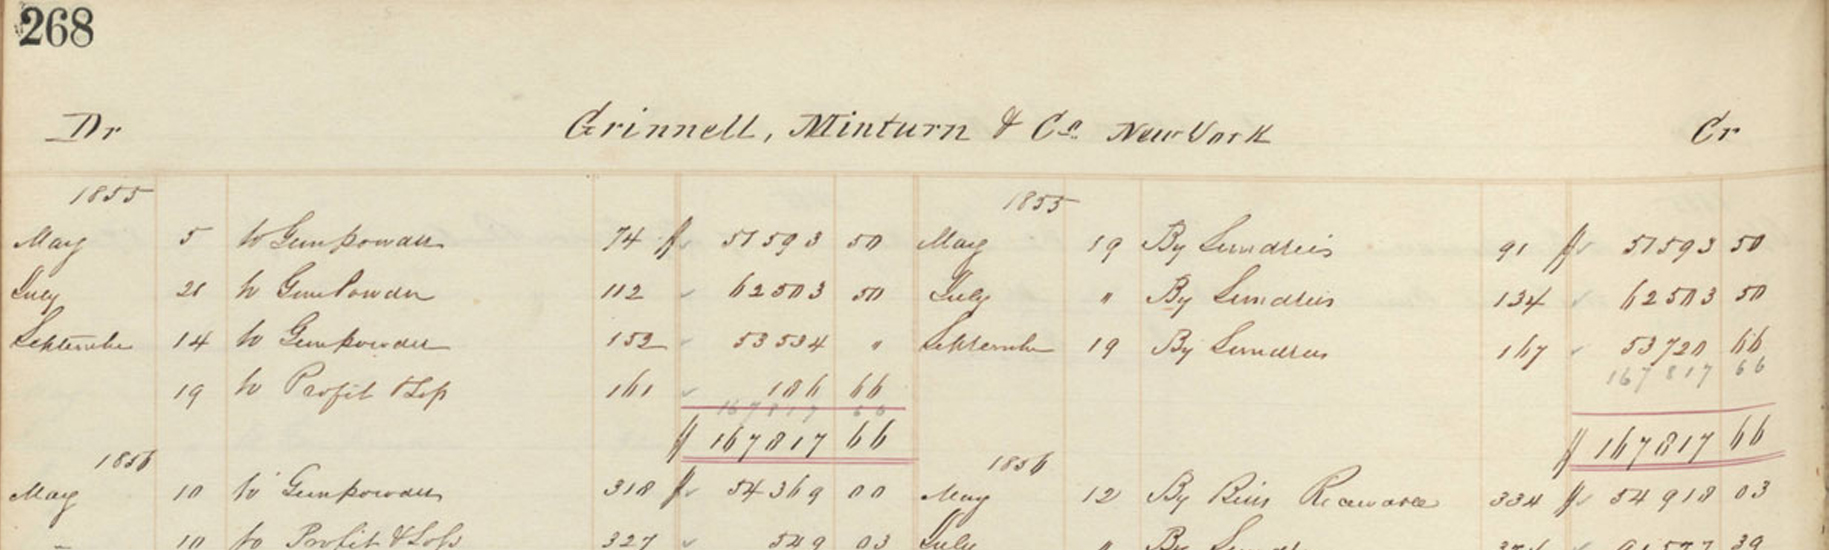 268
Dr Grinnell, Minturn & Co. New York Cr
1855 1855
May 5 to Gunpowder 74 $ 51593 50 May 19 By Sundries 91 $ 51593 50
July 21 to GunPowder 112 62503 50 July " By Sundries 134 62503 50
September 14 to Gunpowder 152 53534 " September 19 By Sundries 167 53720 66
19 to Profit & Loss 161 186 66 167 817 66
167 817 66
$ 167817 66 $ 167817 66
1856 1856
May 10 to Gunpowder 318 $ 54369 00 May 12 By Bills 334 $ 54918 03
" 10 to Profit & Loss 327 549 03 July " By 39